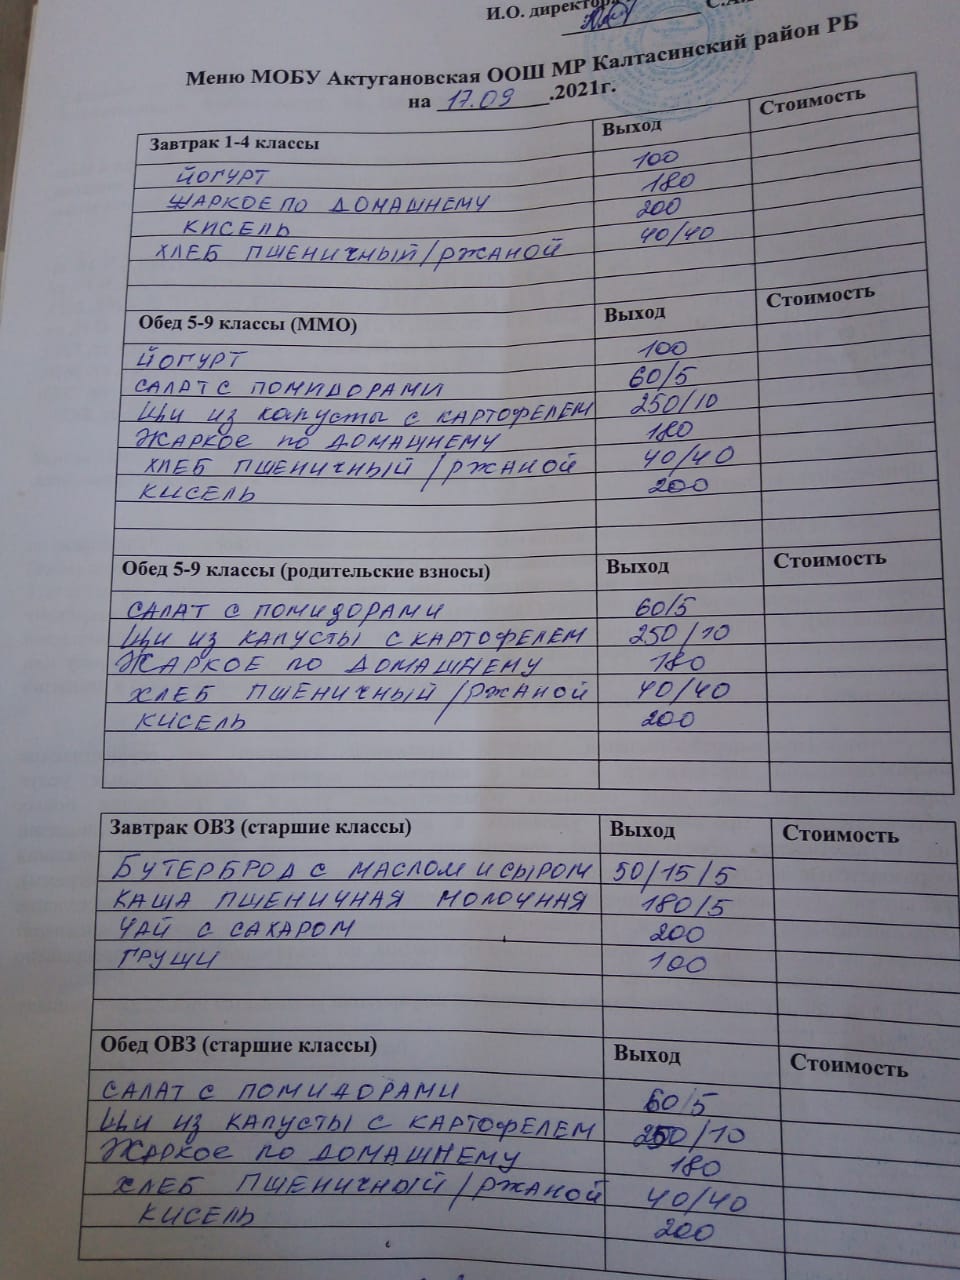 И.О. директора
Меню МОБУ Актугановская ООШ МР Калтасинский район РБ
на 17.09 .2021г.
Завтрак 1-4 классы Выход Стоимость
ЙОГУРТ 100
ЖАРКОЕ ПО ДОМАШНЕМУ 180
КИСЕЛЬ 200
ХЛЕБ ПШЕНИЧНЫЙ/РЖАНОЙ 40/40
Обед 5-9 классы (ММО) Выход Стоимость
ЙОГУРТ 100
САЛАТ С ПОМИДОРАМИ 60/5
Щи из капусты с КАРТОФЕЛЕМ 250/10
ЖАРКОЕ ПО ДОМАШНЕМУ 180
ХЛЕБ ПШЕНИЧНЫЙ/РЖАНОЙ 40/40
КИСЕЛЬ 200
Обед 5-9 классы (родительские взносы) Выход Стоимость
САЛАТ С ПОМИДОРАМИ 60/5
Щи из КАПУСТЫ С КАРТОФЕЛЕМ 250/10
ЖАРКОЕ ПО ДОМАШНЕМУ 180
ХЛЕБ ПШЕНИЧНЫЙ/РЖАНОЙ 40/40
КИСЕЛЬ 200
Завтрак ОВЗ (старшие классы) Выход Стоимость
БУТЕРБРОД С МАСЛОМ И СЫРОМ 50/15/5
КАША ПШЕНИЧНАЯ МОЛОЧНАЯ 180/5
ЧАЙ С САХАРОМ 200
ГРУШИ 100
Обед ОВЗ (старшие классы) Выход Стоимость
САЛАТ С ПОМИДОРАМИ 60/5
Щи из КАПУСТЫ С КАРТОФЕЛЕМ 250/10
ЖАРКОЕ ПО ДОМАШНЕМУ 180
ХЛЕБ ПШЕНИЧНЫЙ/РЖАНОЙ 40/40
КИСЕЛЬ 200